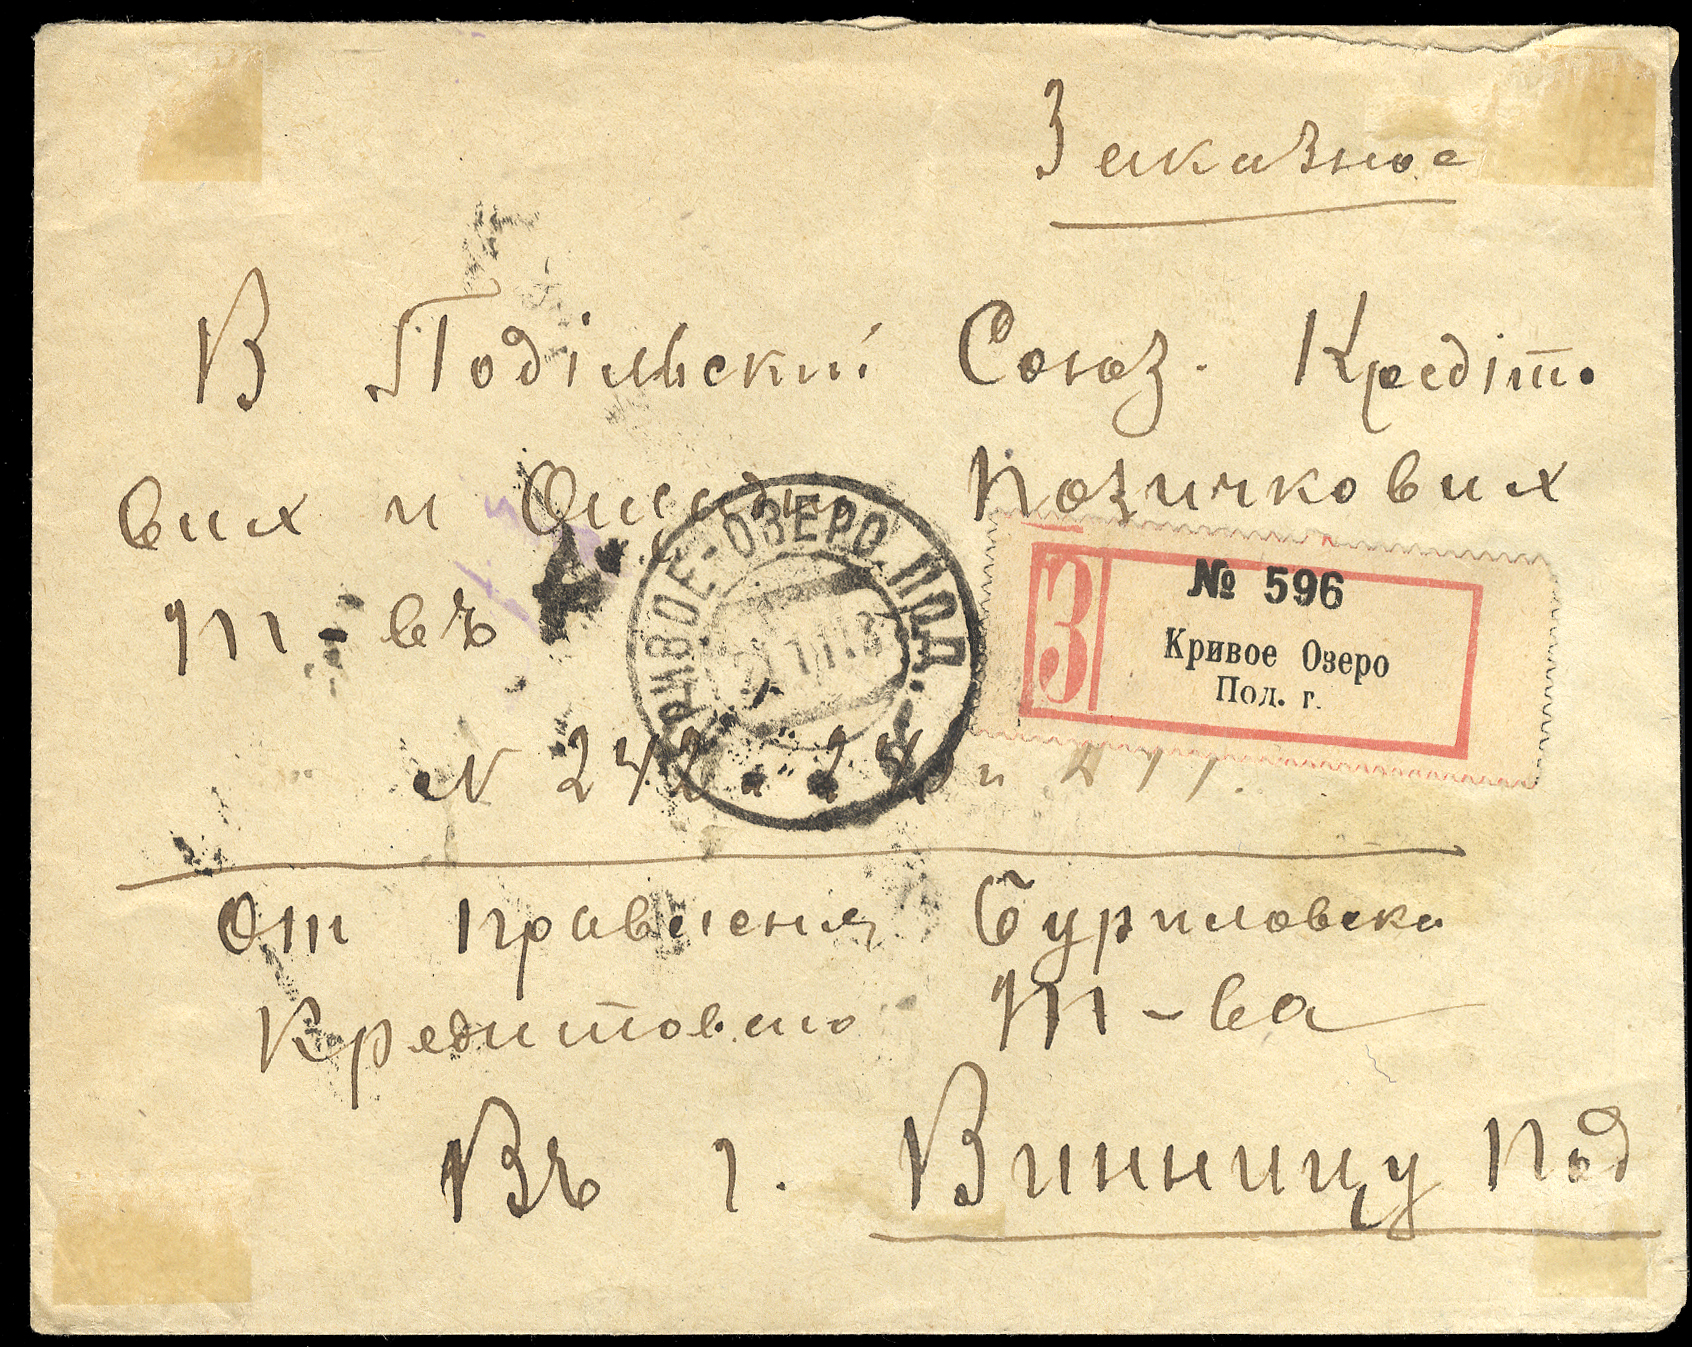 Заказное
В Подільский Союз. Кредіт.
вих и Ощадно Позичкових
Т-въ
КРИВОЕ-ОЗЕРО, ПОД.
З
№ 596
Кривое Озеро
Под. г.
№ 242
и
От правления Буриловска
Кредитового Т-ва
Въ г. Винницу Под